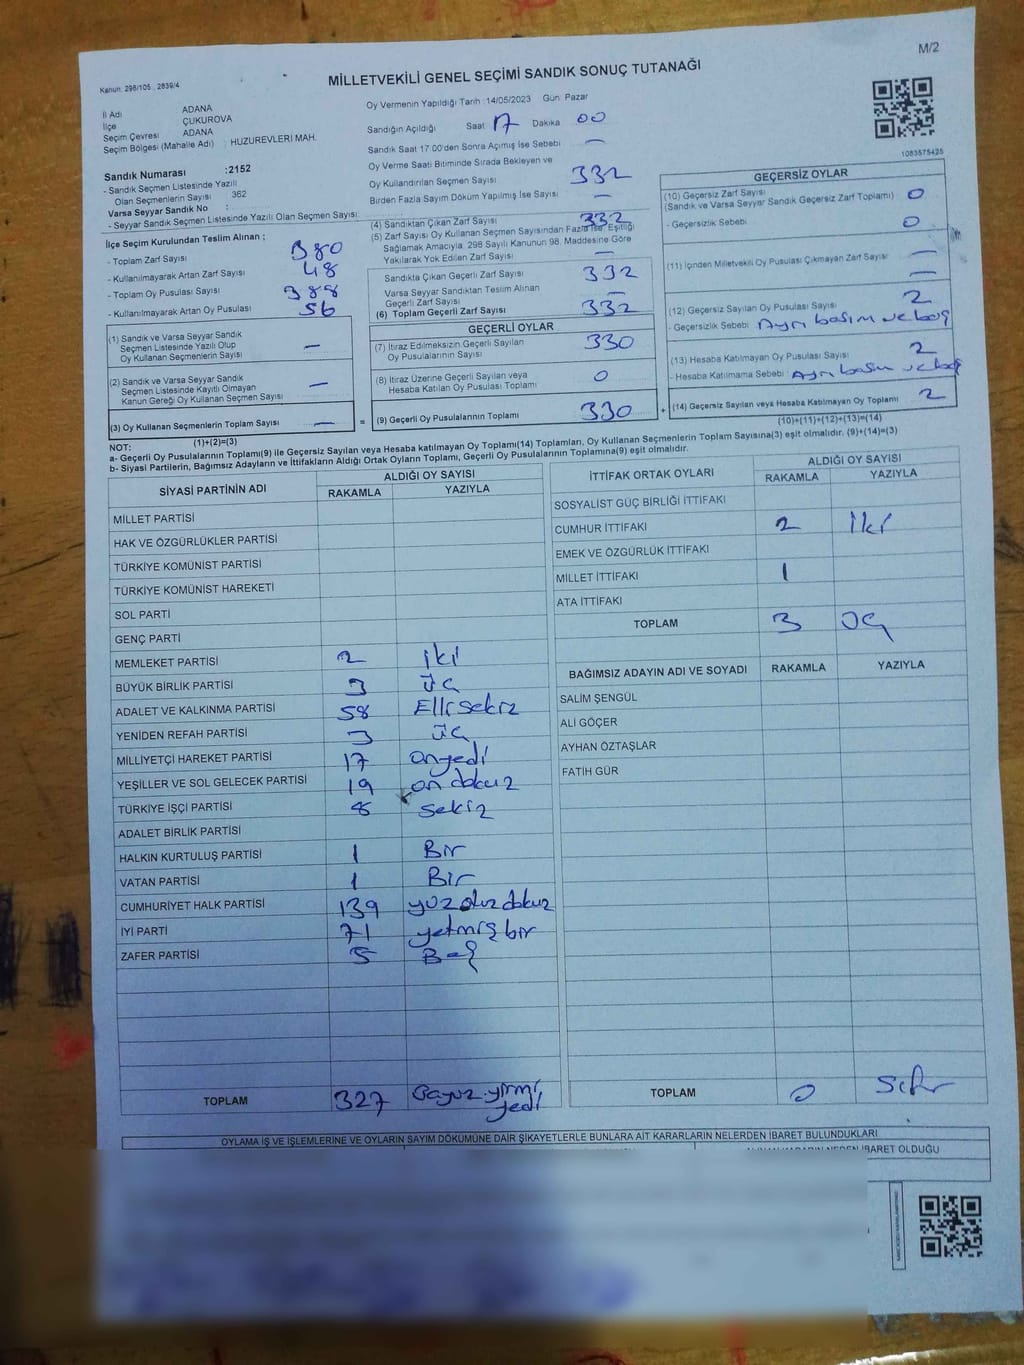 M/2
Kanun: 298/105 , 2839/4
MİLLETVEKİLİ GENEL SEÇİMİ SANDIK SONUÇ TUTANAĞI
İl Adı ADANA
İlçe ÇUKUROVA
Seçim Çevresi ADANA
Seçim Bölgesi (Mahalle Adı) : HUZUREVLERİ MAH.
Oy Vermenin Yapıldığı Tarih :14/05/2023 Gün: Pazar
Sandığın Açıldığı Saat 17 Dakika 00
Sandık Saat 17.00'den Sonra Açılmış İse Sebebi —
Oy Verme Saati Bitiminde Sırada Bekleyen ve
Oy Kullandırılan Seçmen Sayısı 332
Birden Fazla Sayım Döküm Yapılmış İse Sayısı —
1083575425
Sandık Numarası :2152
- Sandık Seçmen Listesinde Yazılı
Olan Seçmenlerin Sayısı : 362
Varsa Seyyar Sandık No :
- Seyyar Sandık Seçmen Listesinde Yazılı Olan Seçmen Sayısı:
İlçe Seçim Kurulundan Teslim Alınan ;
- Toplam Zarf Sayısı 380
- Kullanılmayarak Artan Zarf Sayısı 48
- Toplam Oy Pusulası Sayısı 388
- Kullanılmayarak Artan Oy Pusulası 56
(1) Sandık ve Varsa Seyyar Sandık
Seçmen Listesinde Yazılı Olup
Oy Kullanan Seçmenlerin Sayısı —
(2) Sandık ve Varsa Seyyar Sandık
Seçmen Listesinde Kayıtlı Olmayan
Kanun Gereği Oy Kullanan Seçmen Sayısı —
(3) Oy Kullanan Seçmenlerin Toplam Sayısı —
(1)+(2)=(3)
(4) Sandıktan Çıkan Zarf Sayısı 332
(5) Zarf Sayısı Oy Kullanan Seçmen Sayısından Fazla İse, Eşitliği
Sağlamak Amacıyla, 298 Sayılı Kanunun 98. Maddesine Göre
Yakılarak Yok Edilen Zarf Sayısı —
Sandıkta Çıkan Geçerli Zarf Sayısı 332
Varsa Seyyar Sandıktan Teslim Alınan
Geçerli Zarf Sayısı —
(6) Toplam Geçerli Zarf Sayısı 332
GEÇERLİ OYLAR
(7) İtiraz Edilmeksizin Geçerli Sayılan
Oy Pusulalarının Sayısı 330
(8) İtiraz Üzerine Geçerli Sayılan veya
Hesaba Katılan Oy Pusulası Toplamı 0
= (9) Geçerli Oy Pusulalarının Toplamı 330 +
GEÇERSİZ OYLAR
(10) Geçersiz Zarf Sayısı
(Sandık ve Varsa Seyyar Sandık Geçersiz Zarf Toplamı) 0
- Geçersizlik Sebebi : 0
(11) İçinden Milletvekili Oy Pusulası Çıkmayan Zarf Sayısı —
—
(12) Geçersiz Sayılan Oy Pusulası Sayısı 2
- Geçersizlik Sebebi : Ayrı basım ve boş
(13) Hesaba Katılmayan Oy Pusulası Sayısı 2
- Hesaba Katılmama Sebebi : Ayrı basım ve boş
(14) Geçersiz Sayılan veya Hesaba Katılmayan Oy Toplamı 2
(10)+(11)+(12)+(13)=(14)
NOT:
a- Geçerli Oy Pusulalarının Toplamı(9) ile Geçersiz Sayılan veya Hesaba katılmayan Oy Toplamı(14) Toplamları, Oy Kullanan Seçmenlerin Toplam Sayısına(3) eşit olmalıdır. (9)+(14)=(3)
b- Siyasi Partilerin, Bağımsız Adayların ve İttifakların Aldığı Ortak Oyların Toplamı, Geçerli Oy Pusulalarının Toplamına(9) eşit olmalıdır.
SİYASİ PARTİNİN ADI ALDIĞI OY SAYISI
RAKAMLA YAZIYLA
MİLLET PARTİSİ
HAK VE ÖZGÜRLÜKLER PARTİSİ
TÜRKİYE KOMÜNİST PARTİSİ
TÜRKİYE KOMÜNİST HAREKETİ
SOL PARTİ
GENÇ PARTİ
MEMLEKET PARTİSİ 2 iki
BÜYÜK BİRLİK PARTİSİ 3 üç
ADALET VE KALKINMA PARTİSİ 58 Elli sekiz
YENİDEN REFAH PARTİSİ 3 üç
MİLLİYETÇİ HAREKET PARTİSİ 17 onyedi
YEŞİLLER VE SOL GELECEK PARTİSİ 19 on dokuz
TÜRKİYE İŞÇİ PARTİSİ 8 sekiz
ADALET BİRLİK PARTİSİ
HALKIN KURTULUŞ PARTİSİ 1 Bir
VATAN PARTİSİ 1 Bir
CUMHURİYET HALK PARTİSİ 139 yüz otuz dokuz
İYİ PARTİ 71 yetmiş bir
ZAFER PARTİSİ 5 Beş
TOPLAM 327 üçyüz yirmi yedi
İTTİFAK ORTAK OYLARI ALDIĞI OY SAYISI
RAKAMLA YAZIYLA
SOSYALİST GÜÇ BİRLİĞİ İTTİFAKI
CUMHUR İTTİFAKI 2 iki
EMEK VE ÖZGÜRLÜK İTTİFAKI
MİLLET İTTİFAKI 1
ATA İTTİFAKI
TOPLAM 3 üç
BAĞIMSIZ ADAYIN ADI VE SOYADI RAKAMLA YAZIYLA
SALİM ŞENGÜL
ALİ GÖÇER
AYHAN ÖZTAŞLAR
FATİH GÜR
TOPLAM 0 Sıfır
OYLAMA İŞ VE İŞLEMLERİNE VE OYLARIN SAYIM DÖKÜMÜNE DAİR ŞİKAYETLERLE BUNLARA AİT KARARLARIN NELERDEN İBARET BULUNDUKLARI
İBARET OLDUĞU